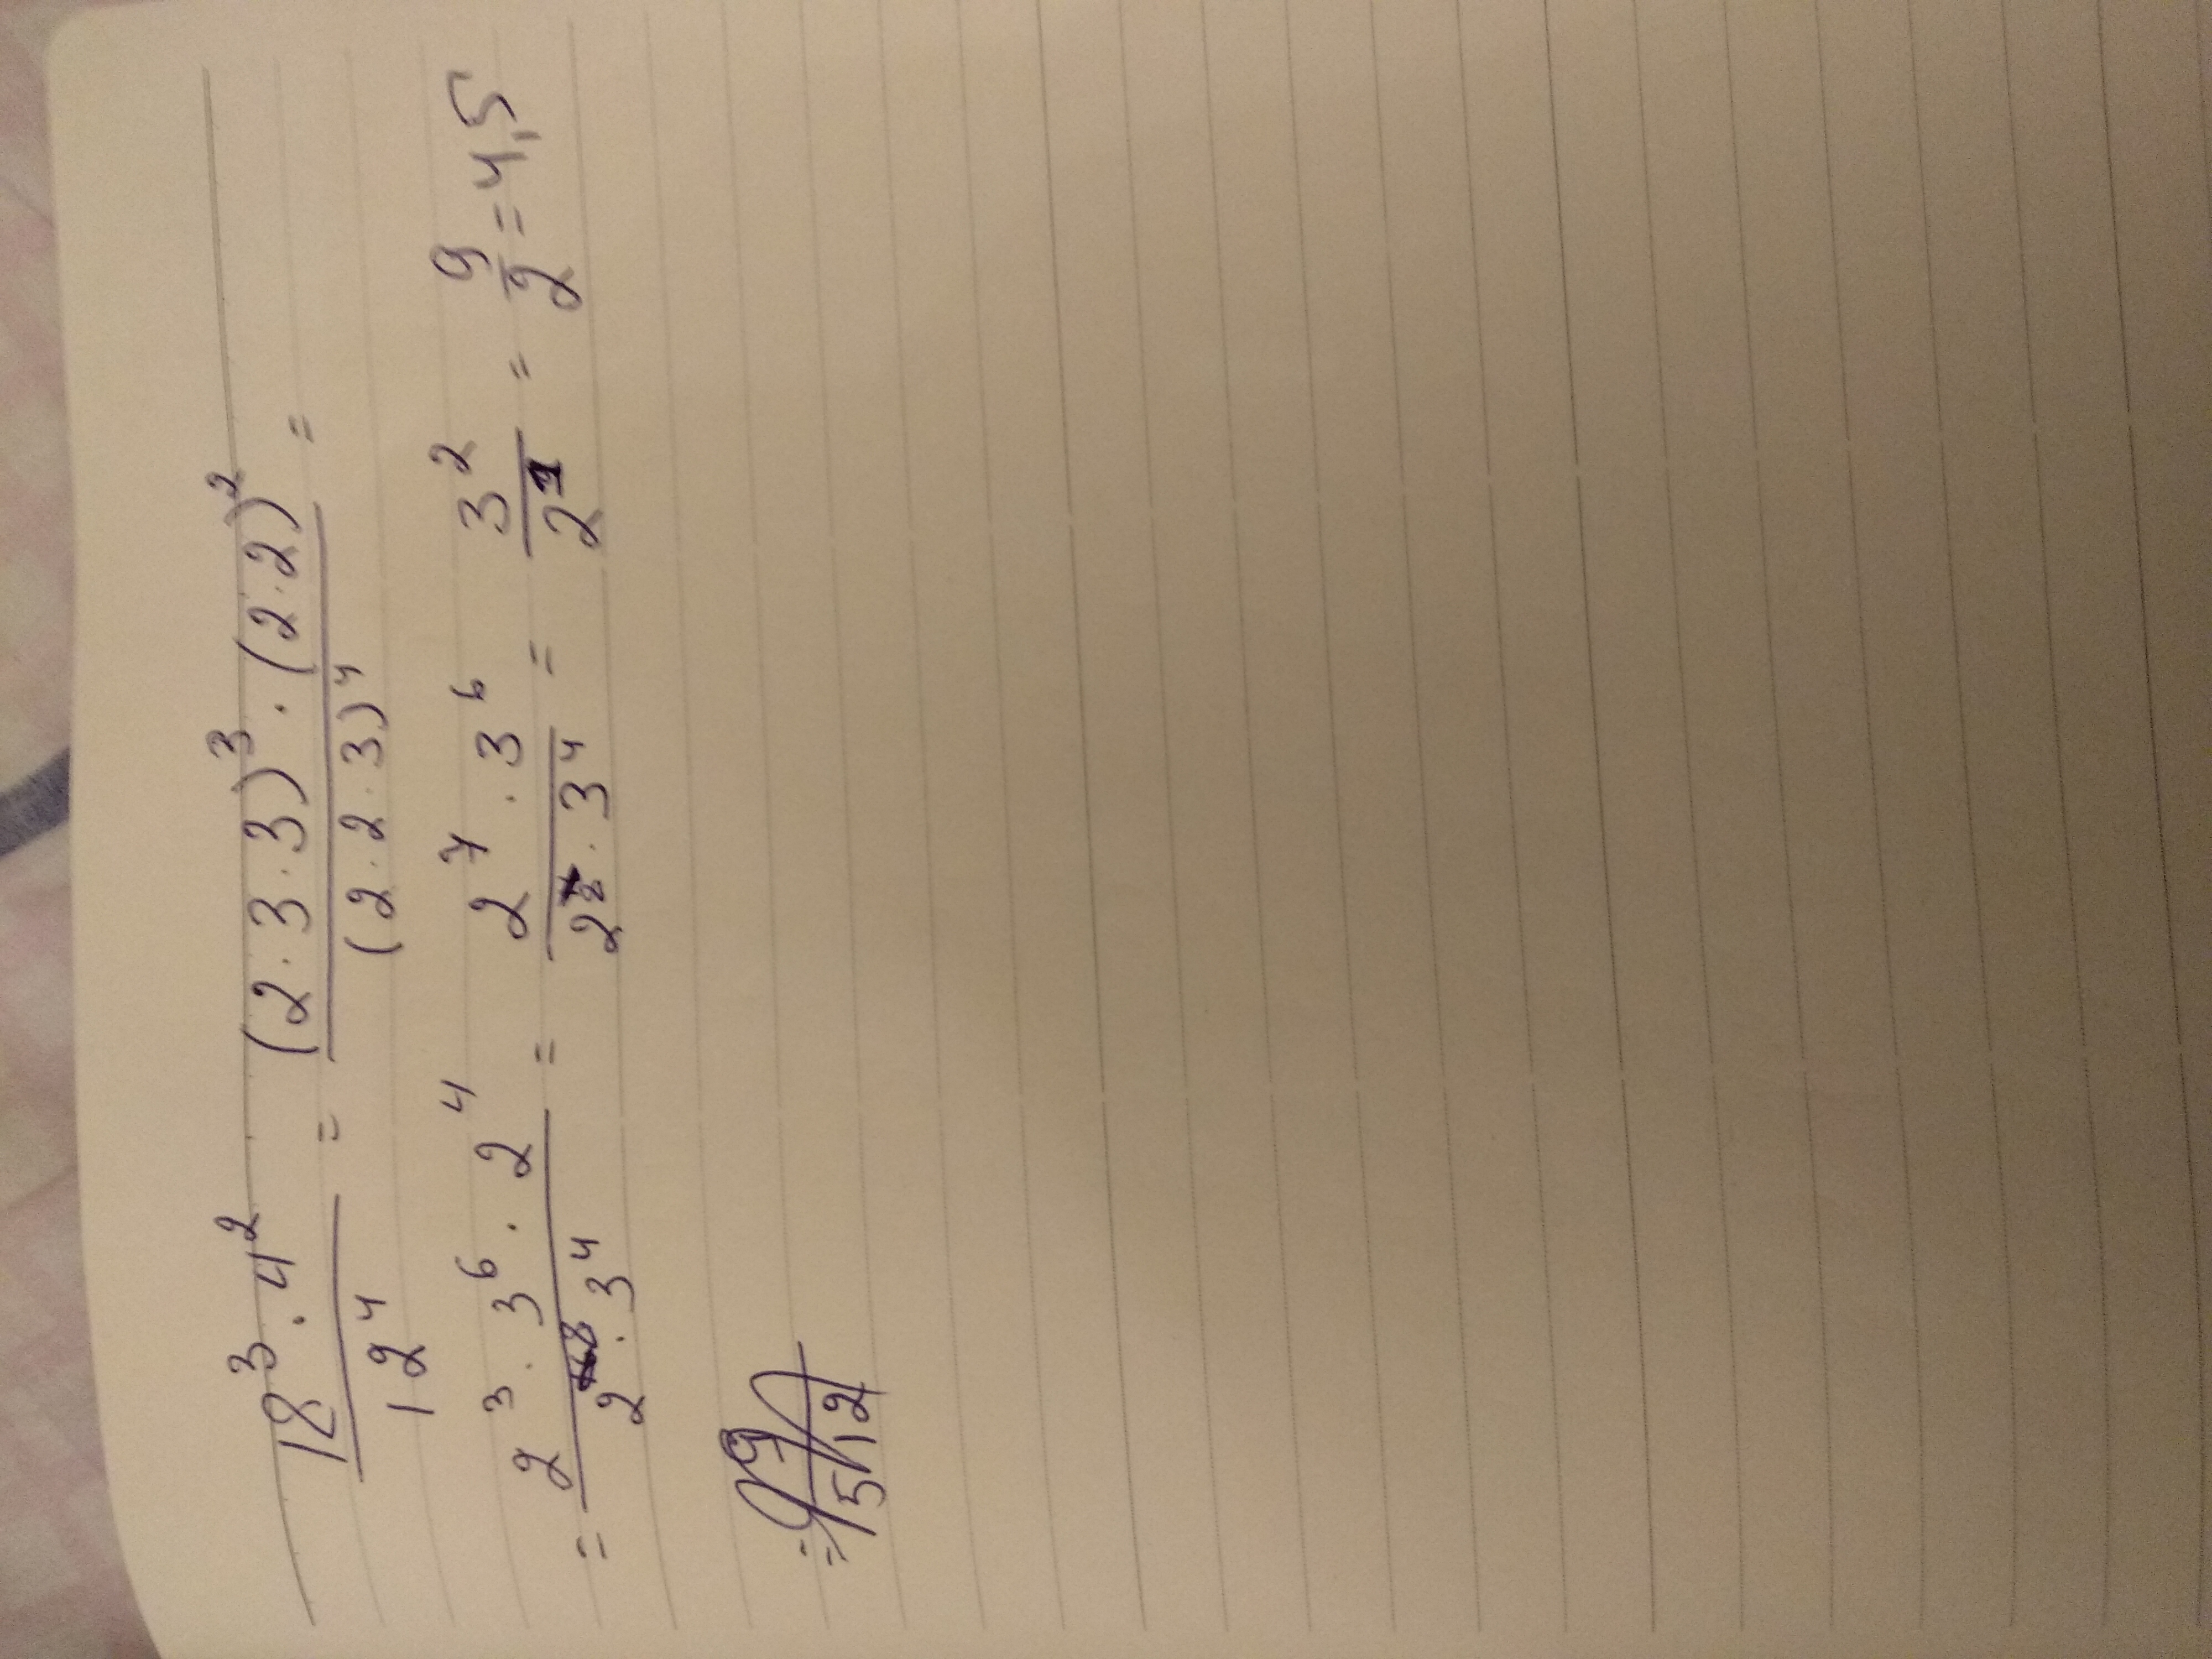 18³ · 4² / 12⁴ = (2 · 3 · 3)³ · (2 · 2)² / (2 · 2 · 3)⁴ =
= 2³ · 3⁶ · 2⁴ / 2⁸ · 3⁴ = 2⁷ · 3⁶ / 2⁸ · 3⁴ = 3² / 2¹ = 9 / 2 = 4,5
= 9 / 512